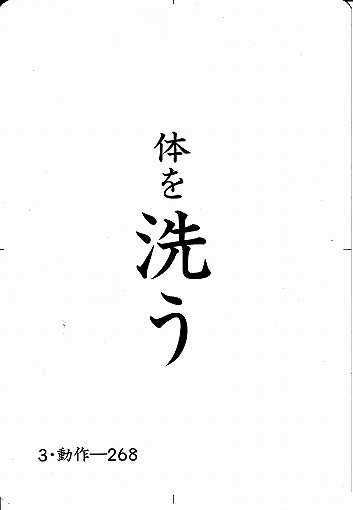 体を洗う
3・動作―268